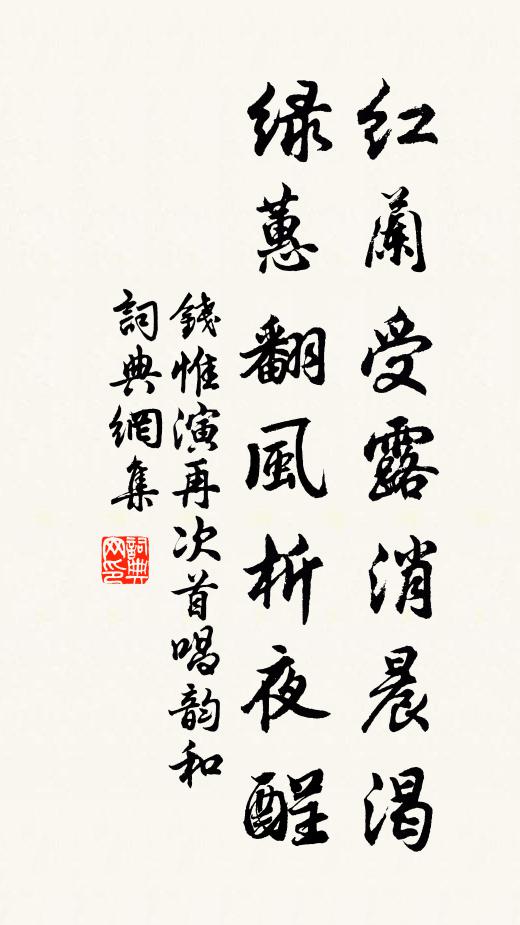 红蘭受露消晨渴
绿蕙翻風析夜酲
錢惟演再次首唱韵和
詞典網集
詞典网印